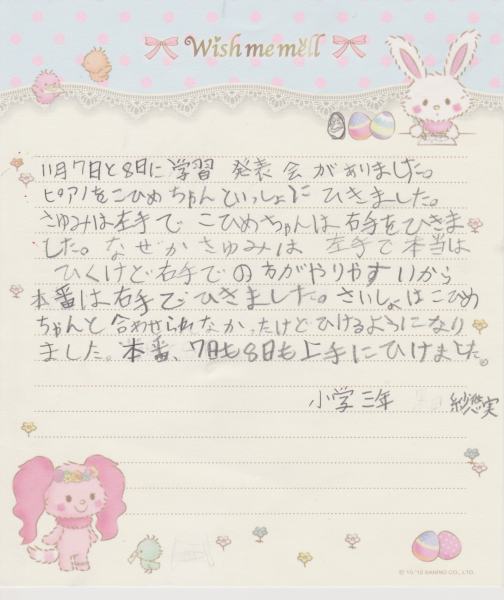 Wish me mell
11月7日と8日に学習 発表会がありました。
ピアノをこひめちゃんといっしょに ひきました。
さゆみは左手で こひめちゃんは右手をひきま
した。なぜかさゆみは 左手で本当は
ひくけど右手での方がやりやすいから
本番は右手でひきました。さいしょはこひめ
ちゃんと合わせられなかったけどひけるようになり
ました。本番、7日も8日も上手にひけました。
小学三年 紗悠実
© '10, '12 SANRIO CO., LTD.